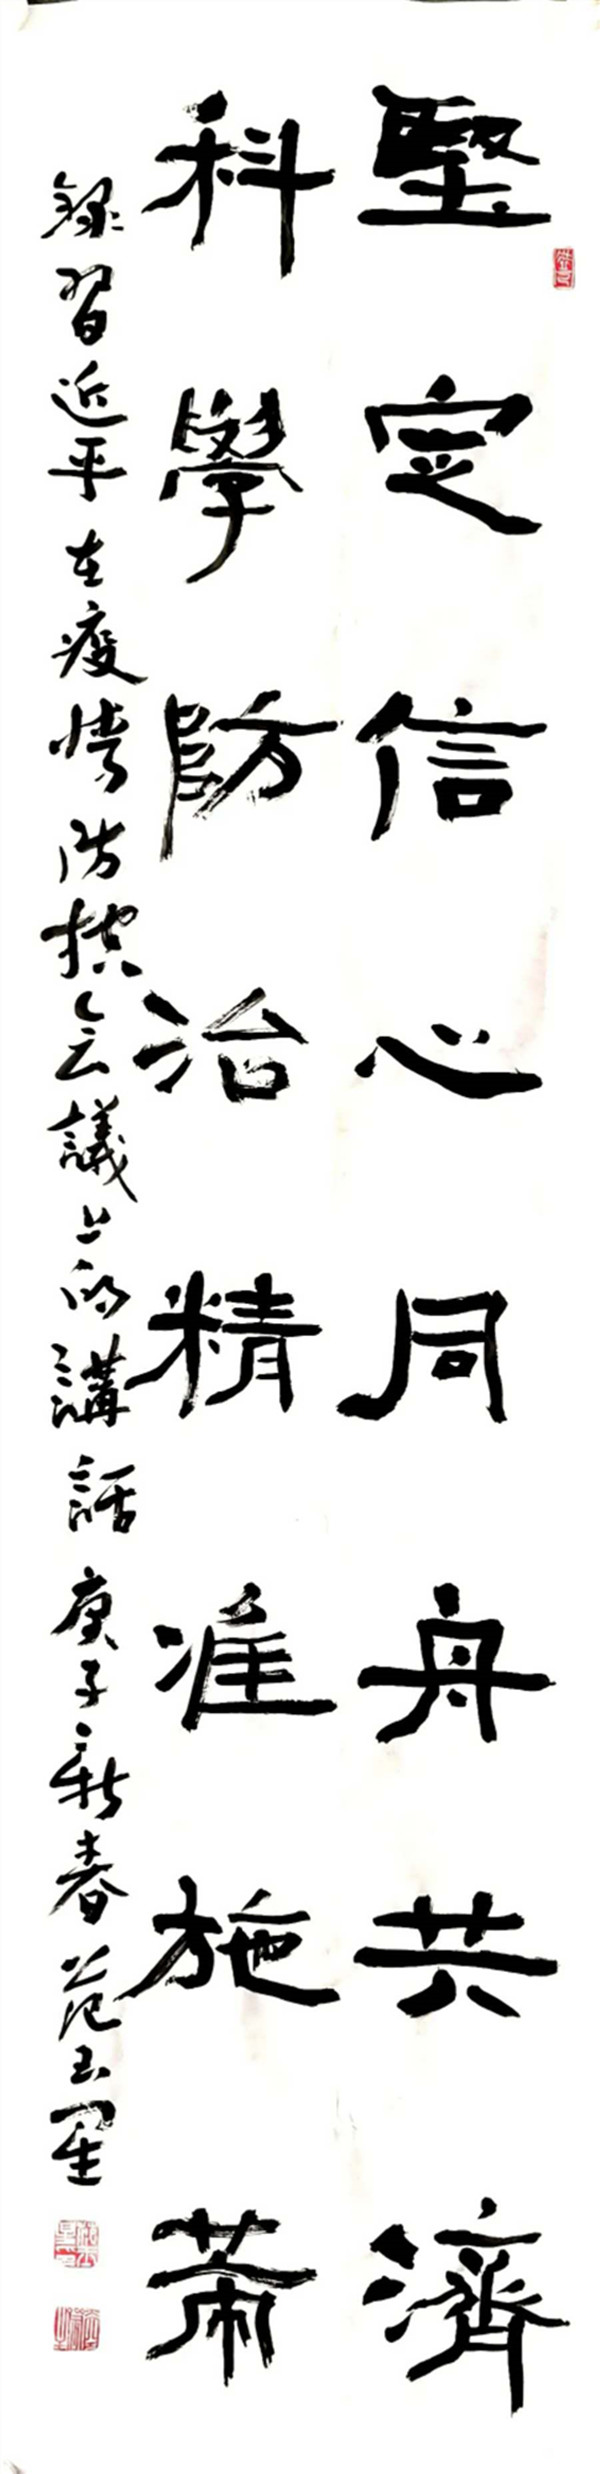 堅定信心同舟共濟
科學防治精准施策
錄習近平在疫情防控会議上的講話庚子新春范玉星